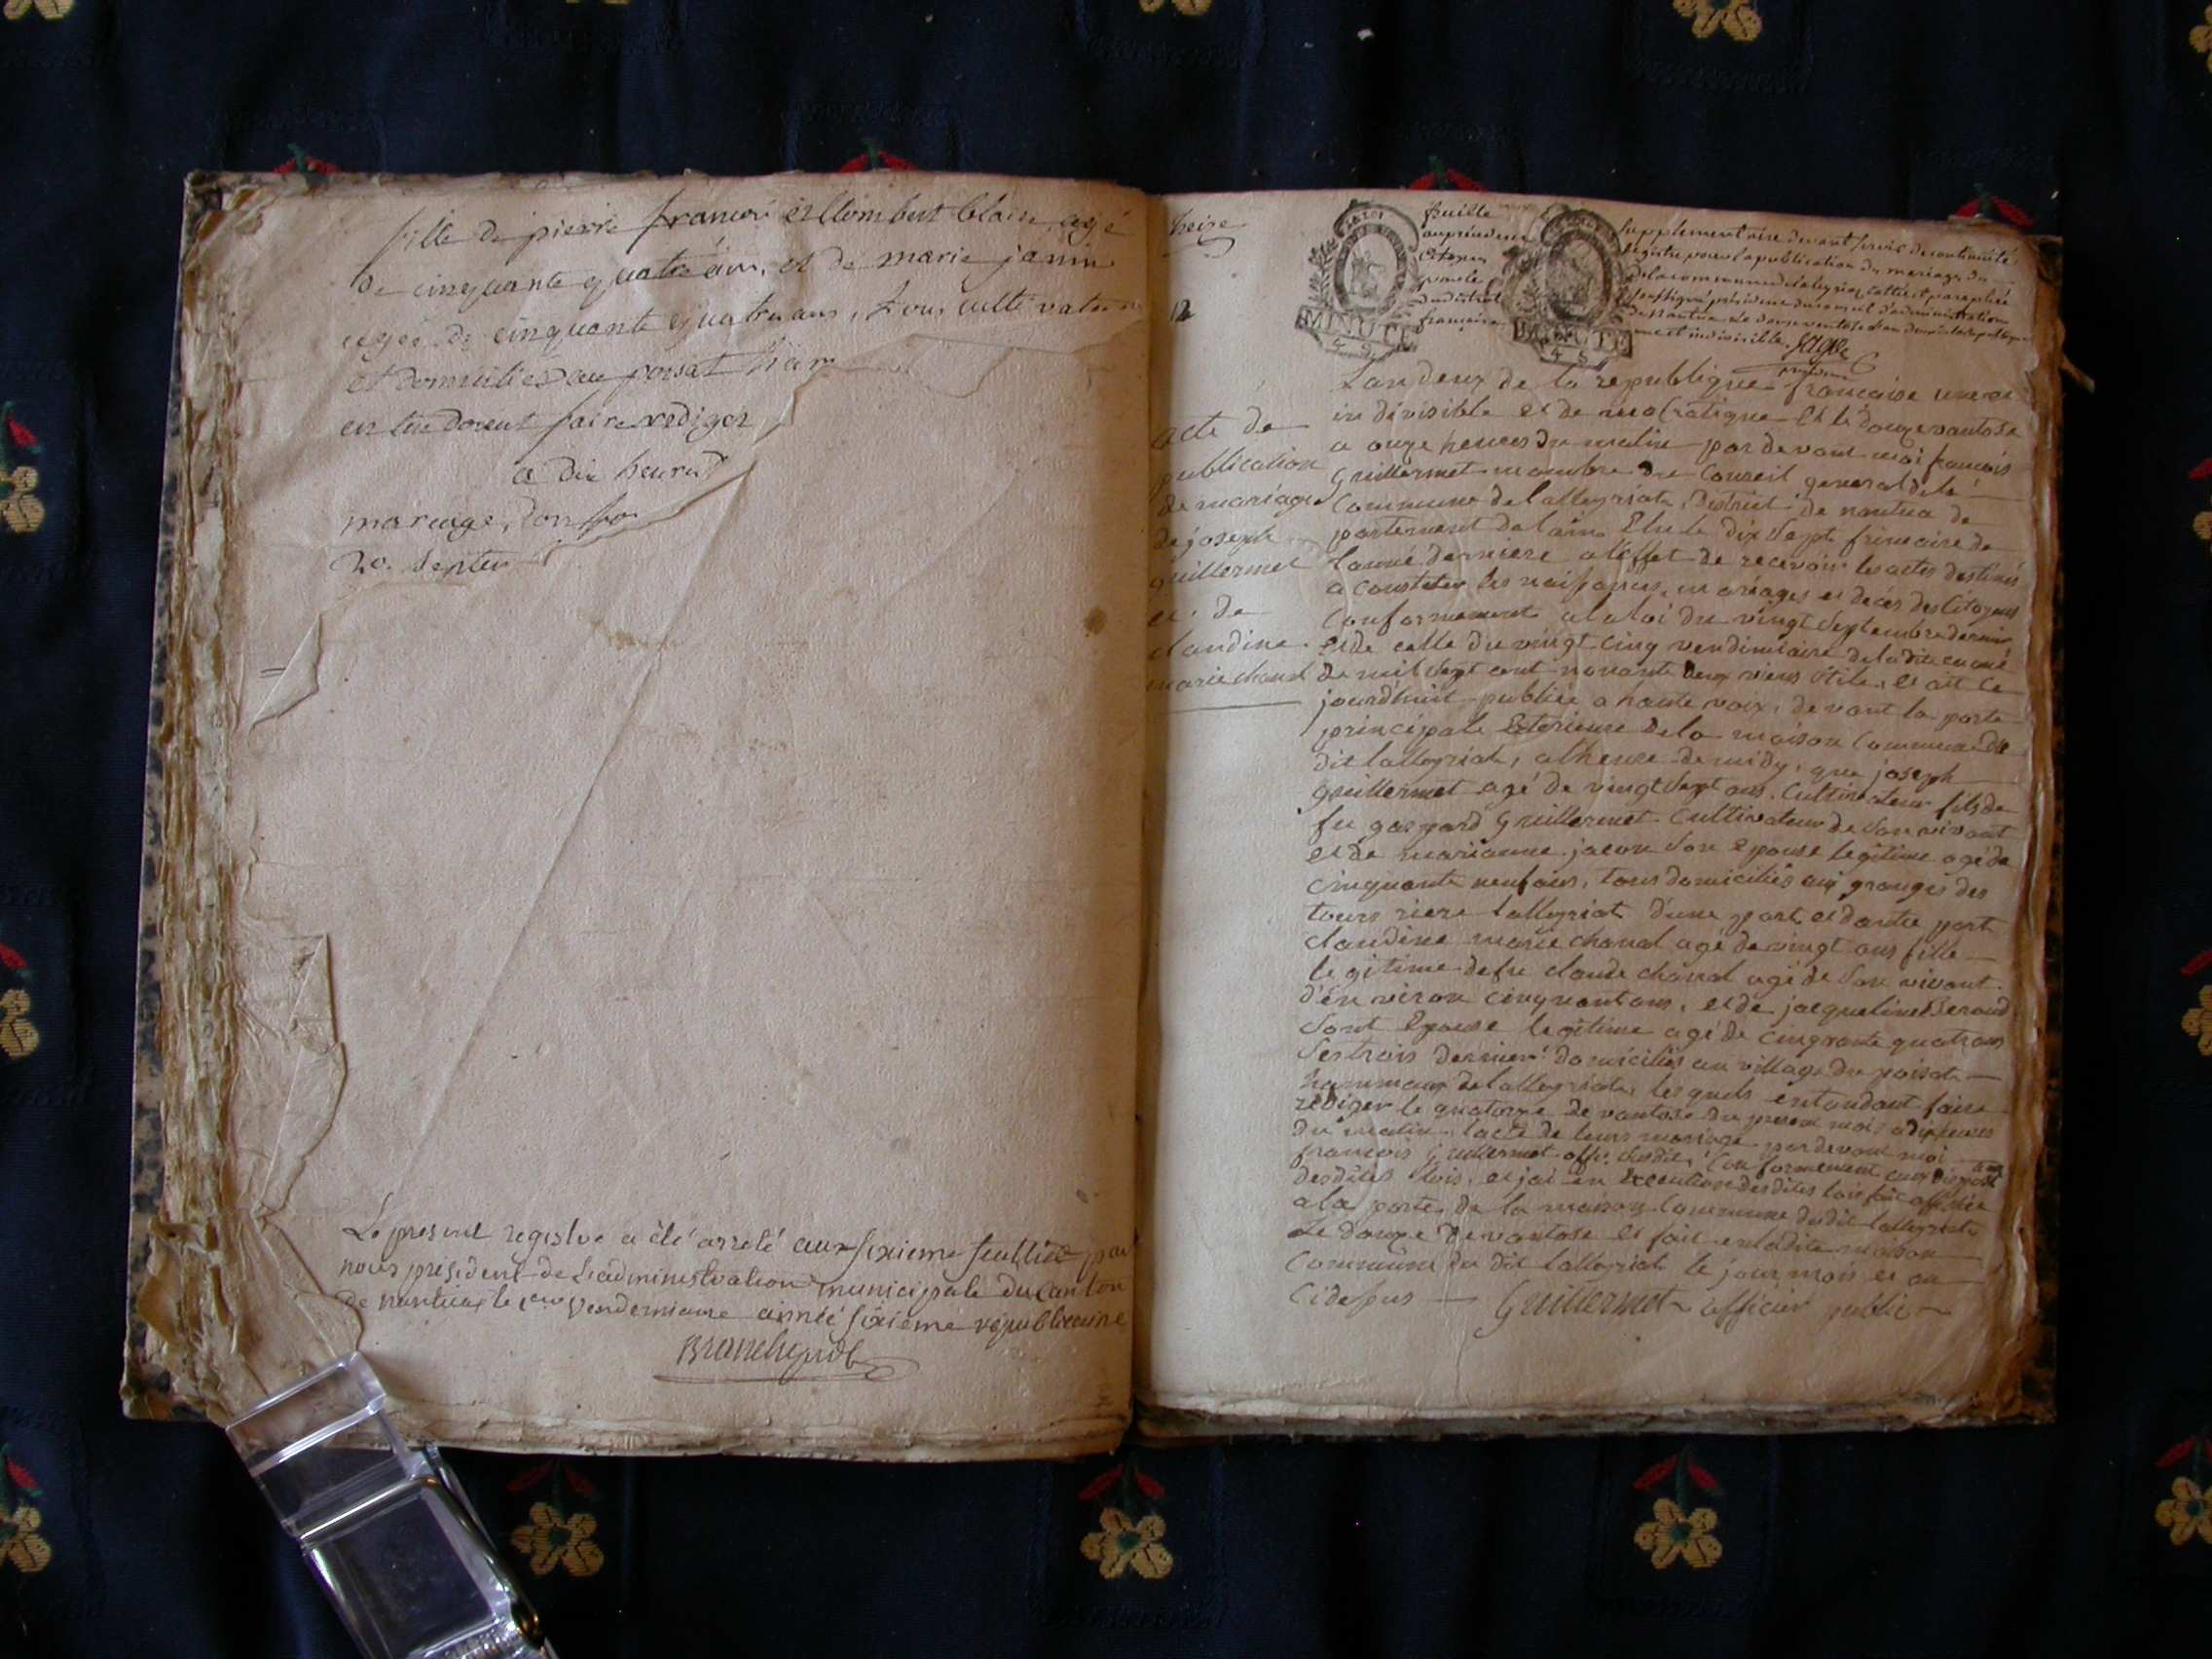 fille de pierre francois et llombert claire, agé
de cinquante quatre ans, et de marie janin
agée de cinquante et quatre ans, tous cultivateurs
et domiciliés au poisat
entendoient faire rediger
a dix heures
mariage, dont
20. septem
Le present registre a été arreté aux sixieme feuillet par
nous président de l'administration municipale du canton
de nantua, le 1er vendemiaire année sixième républicaine
treize
12
feuille
citoyen
pour le
du district
française
MINUTE
4 S
MINUTE
4 S
supplementaire devant servir de continuité
registre pour la publication du mariage du
de la commune de lalleyriat cottée et paraphée
soussigné président du conseil d'administration
de nantua le douze ventose l'an deux de la republique
une et indivisible.
acte de
publication
de mariage
de joseph
guillermet
et de
claudine
marie chanal
Lan deux de la republique francaise une et
indivisible et democratique et le douze vantose
a onze heures du matin par devant moi francois
Guillermet membre du Conseil general de la
Commune de lalleyriat, District de nantua de
partement de lain Elu le dix sept frimaire de
lanné derniere a leffet de recevoir les actes destinés
a constater les naissances, mariages et deces des Citoyens
Conformement a la loi du vingt Septembre dernier
et de celle du vingt cinq vendimiaire de la dite année
de mil sept cent nonante deux vieus stile, et ait ce
jourdhuit publiée a haute voix, devant la porte
principale Exterieure de la maison Commune du
dit lalleyriat, a lheure de midy, que joseph
guillermet agé de vingt sept ans Cultivateur fils de
feu gaspard Guillermet Cultivateur de son vivant
et de marianne jacon son epouse legitime agé de
cinquante neuf ans, tous domiciliés aux granges des
tours riere lalleyriat d'une part et dautre part
claudine marie chanal agé de vingt ans fille
legitime de feu claude chanal agé de son vivant
d'environ cinquant ans, et de jacqueline Beroud
sont Epouse legitime agé de cinquante quatrans
ses trois dernier domiciliés au village du poisat
hammeau de lalleyriat, les quels entendant faire
rediger le quatorze de vantose du present mois a dix heures
du matin lacte de leurs mariage par devant moi
francois Guillermet offi. susdit, Conformement aux disposit
desdites lois, et jai en Execution desdites lois fait affichée
a la porte de la maison Commune du dit lalleyriat
Le douze de vantose et fait en ladite maison
Commune du dit lalleyriat le jour mois et an
Cidessus Guillermet officier public